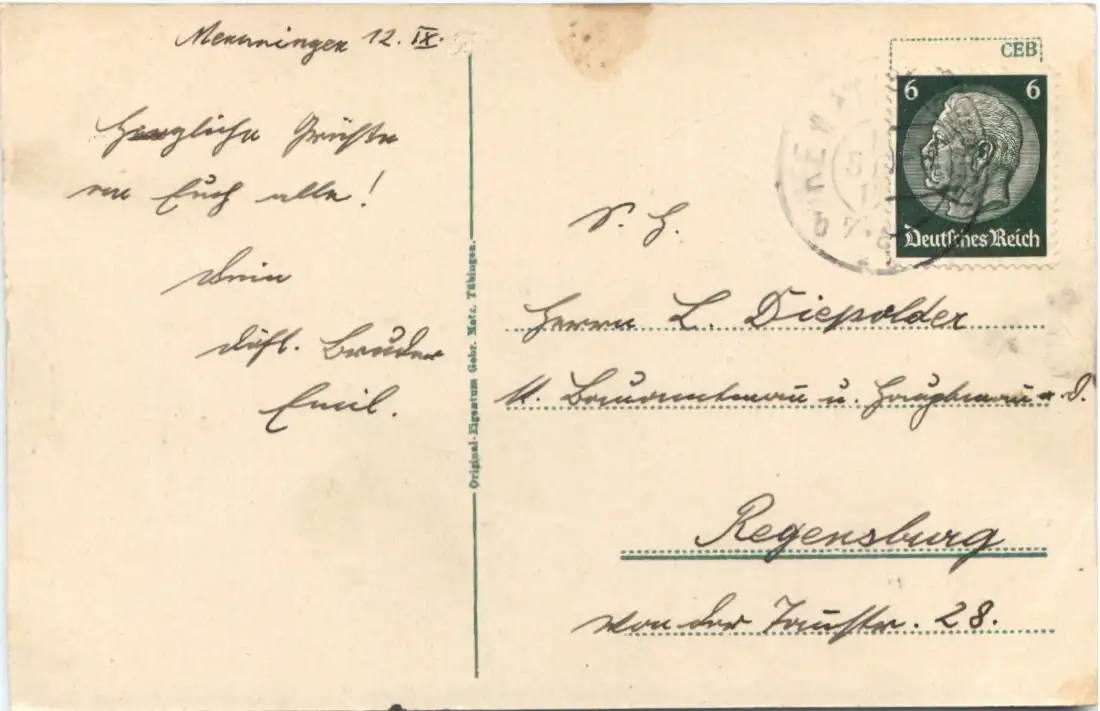 Memmingen 12. IX.
Herzliche Grüße
an Euch alle!
Dein
Bruder
Emil.
Original-Eigentum Gebr. Metz, Tübingen.
CEB
6 6
Deutsches Reich
S. H.
Herrn L. Diepolder
Bauamtmann u. Hauptmann a. D.
Regensburg
von der Tannstr. 28.